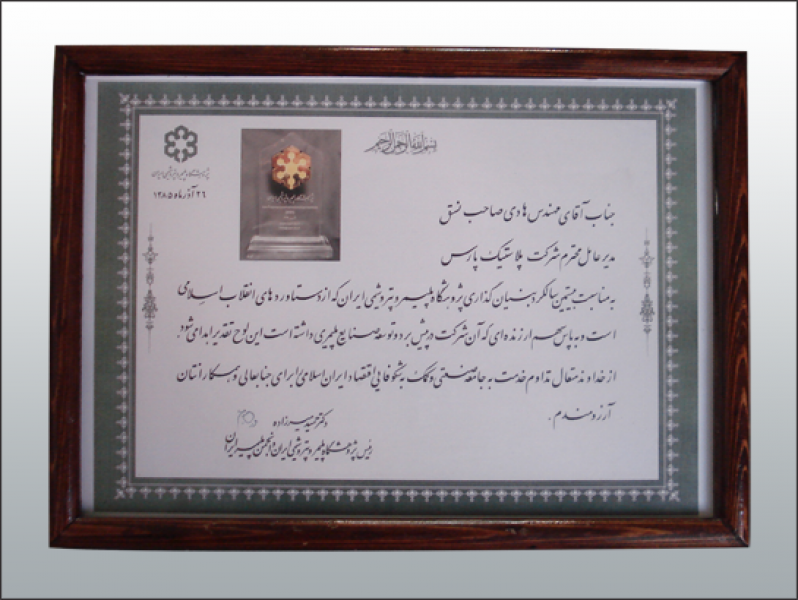 بسم الله الرحمن الرحیم
پژوهشگاه پلیمر و پتروشیمی ایران
۲۶ آذر ماه ۱۳۸۵
جناب آقای مهندس هادی صاحب نسق
مدیر عامل محترم شرکت پلاستیک پارس
به مناسبت بیستمین سالگرد بنیان گذاری پژوهشگاه پلیمر و پتروشیمی ایران که از دستاوردهای انقلاب اسلامی
است و به پاس سهم ارزنده ای که آن شرکت در پیش برد و توسعه صنایع پلیمری داشته است این لوح تقدیر اهدا می شود.
از خداوند متعال تداوم خدمت به جامعه صنعتی و کمک به شکوفایی اقتصاد ایران اسلامی را برای جنابعالی و همکارانتان
آرزومندم.
دکتر حمید میرزاده
رئیس پژوهشگاه پلیمر و پتروشیمی ایران و انجمن پلیمر ایران